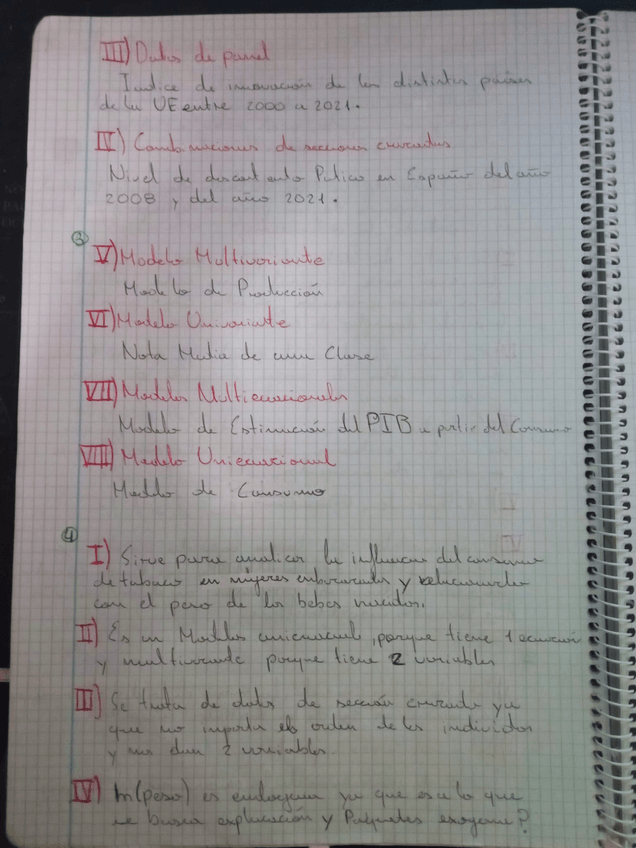 III) Datos de panel
Indice de innovación de los distintos países
de la UE entre 2000 a 2021.
IV) Combinaciones de secciones cruzadas
Nivel de descontento Politico en España del año
2008 y del año 2021.
③
V) Modelo Multivariante
Modelo de Producción
VI) Modelo Univariante
Nota Media de una Clase
VII) Modelos Multiecuacionales
Modelo de Estimación del PIB a partir del Consumo
VIII) Modelo Uniecuacional
Modelo de Consumo
④
I) Sirve para analizar la influencia del consumo
de tabaco en mujeres embarazadas y relacionarlo
con el peso de los bebes nacidos.
II) Es un Modelo uniecuacional, porque tiene 1 ecuación
y multivariante porque tiene 2 variables
III) Se trata de datos de sección cruzada ya
que no importa el orden de los individuos
y nos dan 2 variables.
IV) ln(peso) es endogena ya que es a lo que
se busca explicación y Paquetes exogena?